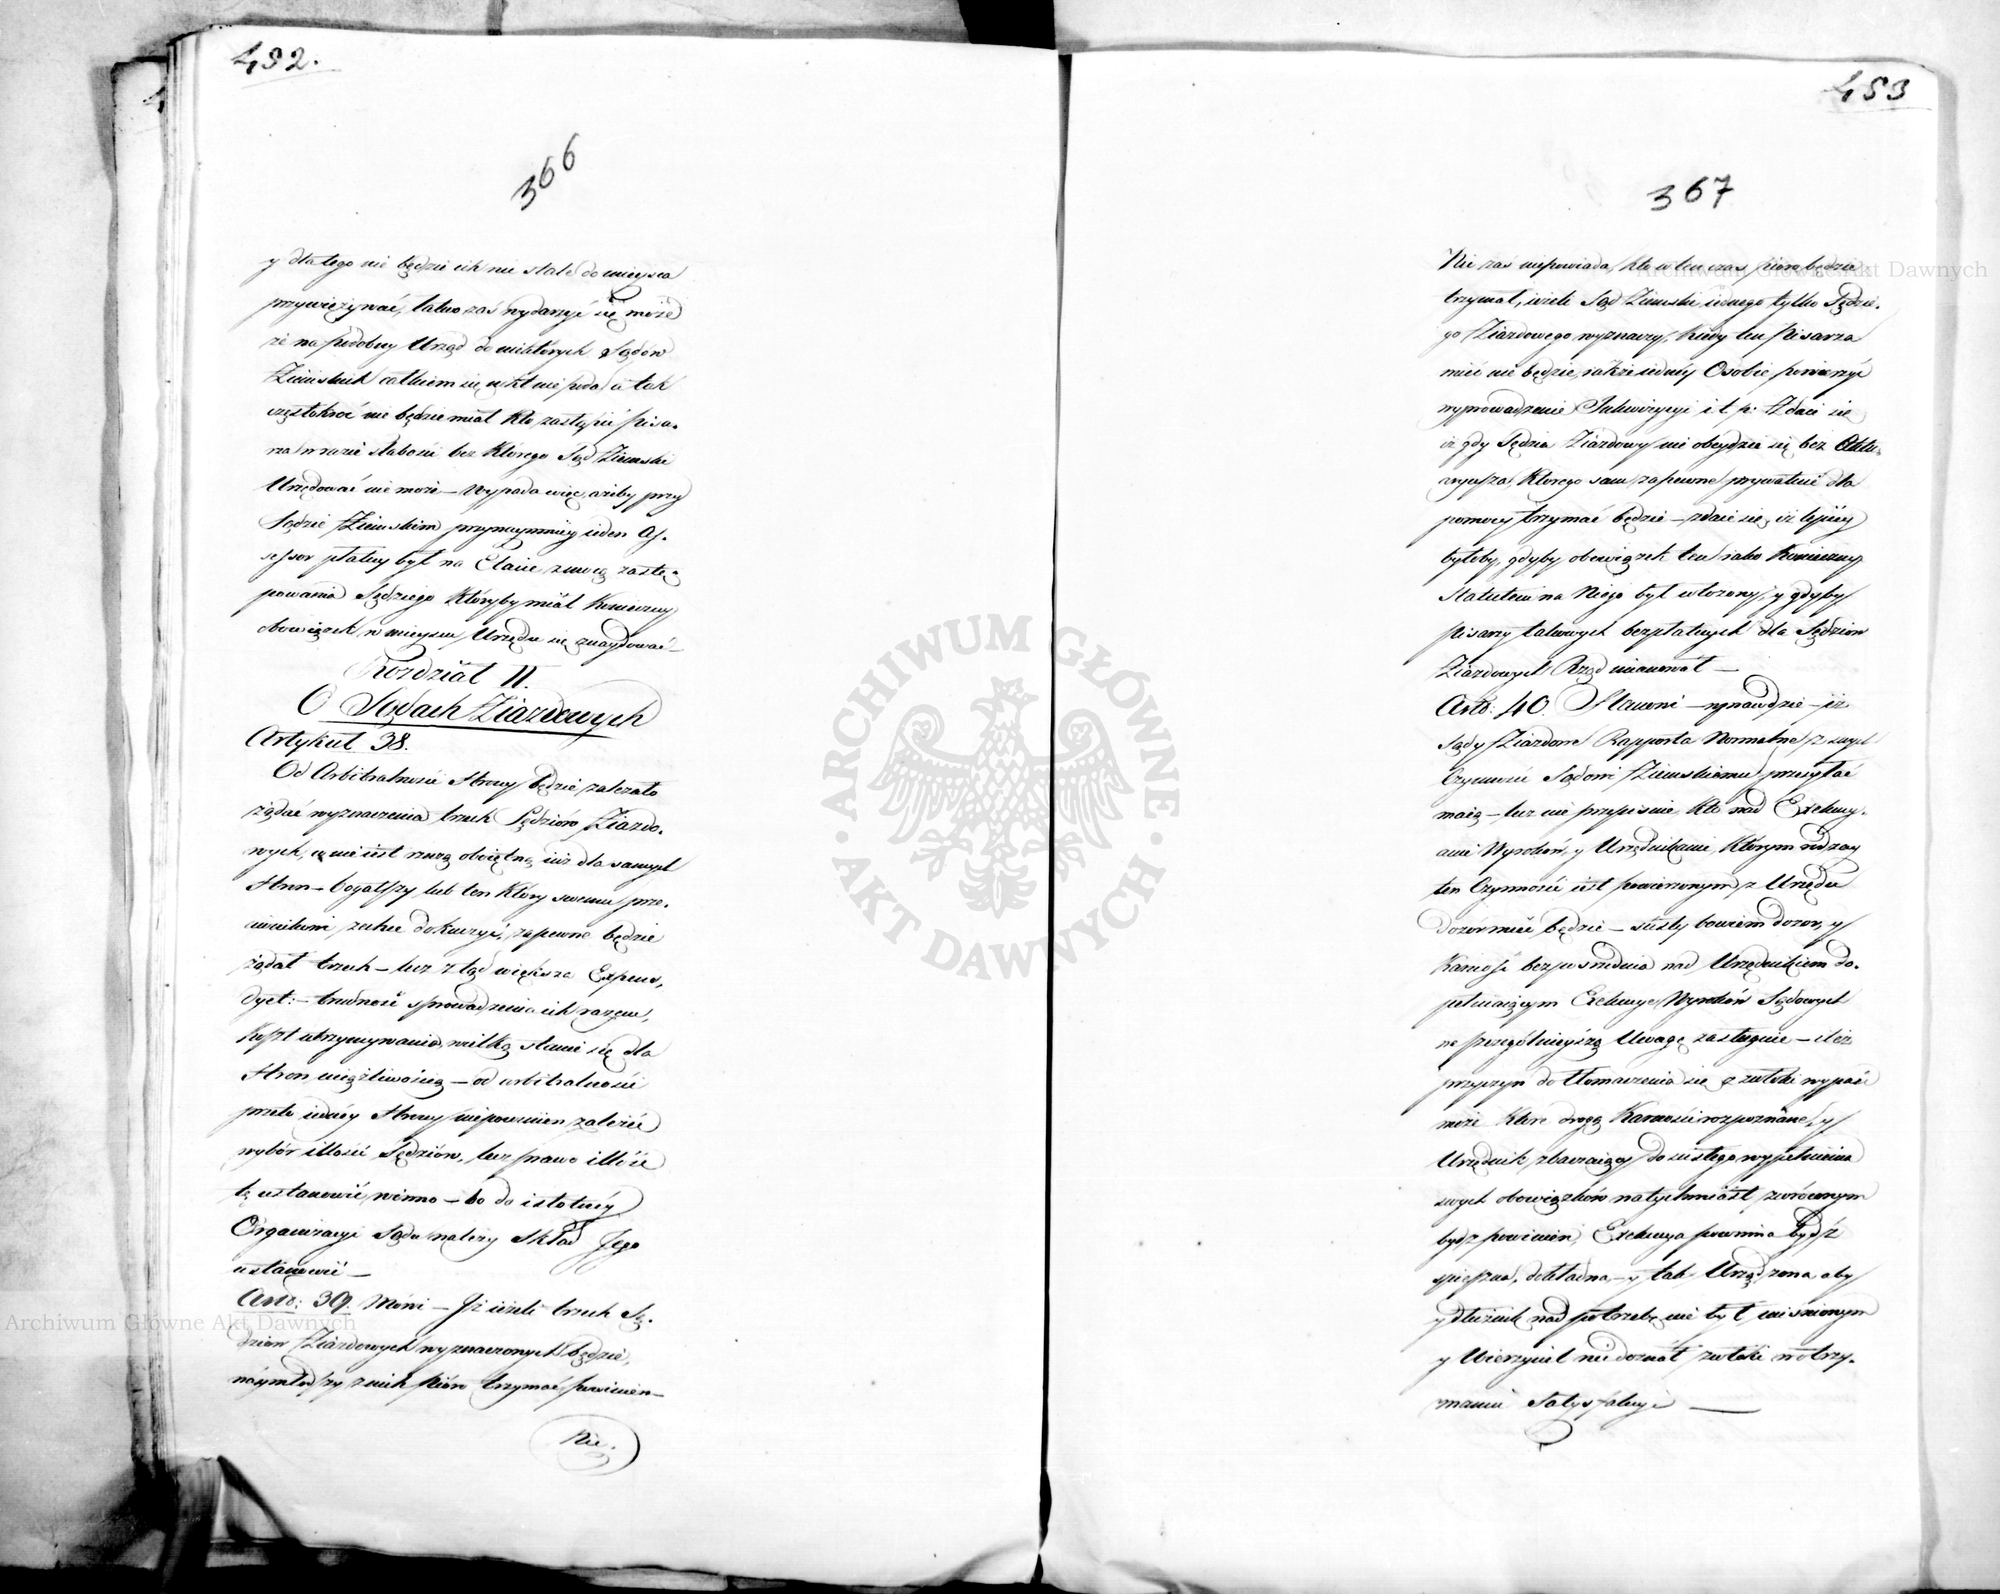 482.
366
y dla tego nie będzie ich nic stale do mieysca
przywięzywać, łatwo zaś wydarzyć się może
że na podobny Urząd do niektórych Sądów
Ziemskich całkiem się nikt nie poda a tak
częstokroć nie będzie miał kto zastąpić Pisa-
rza w razie słabości bez którego Sąd Ziemski
Urzędować nie może — Wypada więc, ażeby przy
Sądzie Ziemskim przynaymniéy ieden As-
sessor płatny był na Etacie z mocą zastę-
powania Sędziego któryby miał konieczny
obowiązek w mieyscu Urzędu się znaydować —
Rozdział II.
O Sądach Ziazdowych
Artykuł 38.
Od Arbitralności Strony będzie zależało
żądać wyznaczenia trzech Sędziów Ziazdo-
wych, co nie iest rzeczą obojętną iuż dla samych
Stron — bogatszy lub ten który swemu prze-
ciwnikowi zechce dokuczyć, zapewne będzie
żądał trzech — lecz z tąd większa Expens,
Dyet: — trudność sprowadzenia ich razem,
koszt utrzymywania, wielką stanie się dla
Stron uciążliwością — od arbitralności
przeto iednéy Strony niepowinien zależeć
wybór ilłości Sędziów, lecz prawo illość
tę ustanowić winno — bo do istotnéy
Organizacyi Sądu należy Skład Jego
ustanowić —
Arto: 39. Mówi — Jż ieżeli trzech Sę-
dziów Ziazdowych wyznaczonych będzie,
naymłodszy z nich Pióro trzymać powinien —
Nie.
483
367
Nie zaś niepowiada, kto w ten czas pióro będzie
trzymał, ieżeli Sąd Ziemski iednego tylko Sędzie-
go Ziazdowego wyznaczy, kiedy ten Pisarza
mieć nie będzie, iakże iednéy Osobie powierzyć
wyprowadzenie Inkwizycyi i t. p: Zdaie się
iż gdy Sędzia Ziazdowy nie obeydzie się bez Aktu-
aryusza, którego sam zapewne prywatnie dla
pomocy trzymać będzie — zdaie się, iż lepiéy
byłoby, gdyby obowiązek ten iako konieczny
Statutem na Niego był włożony, y gdyby
Pisarzy takowych bezpłatnych dla Sędziów
Ziazdowych Rząd mianował —
Arto: 40. Stanowi — wprawdzie — iż
Sądy Ziazdowe Rapporta Normalne z swych
Czynności Sądowi Ziemskiemu przesyłać
maią — lecz nie przepisuie, kto nad Exekucy-
ami Wyroków, y Urzędnikami, którym rodzay
ten Czynności iest powierzonym z Urzędu
dozór mieć będzie — ścisły bowiem dozór, y
Karność bezpośrednia nad Urzędnikiem do-
pełniaiącym Exekucye Wyroków Sądowych
na szczególnieyszą Uwagę zasługuie — ileż
przyczyn do tłomaczenia się z zwłoki wypaść
może które drogą Karności rozpoznane, y
Urzędnik zbaczaiący do ścisłego wypełnienia
swych obowiązków natychmiast zwróconym
bydź powinien, Exekucya powinna bydź
spieszna, dokładna — y tak Urządzona, aby
y dłużnik nad potrzebę nie był uciśnionym
y Wierzyciel nie doznał zwłoki w otrzy-
maniu Satysfakcyi —